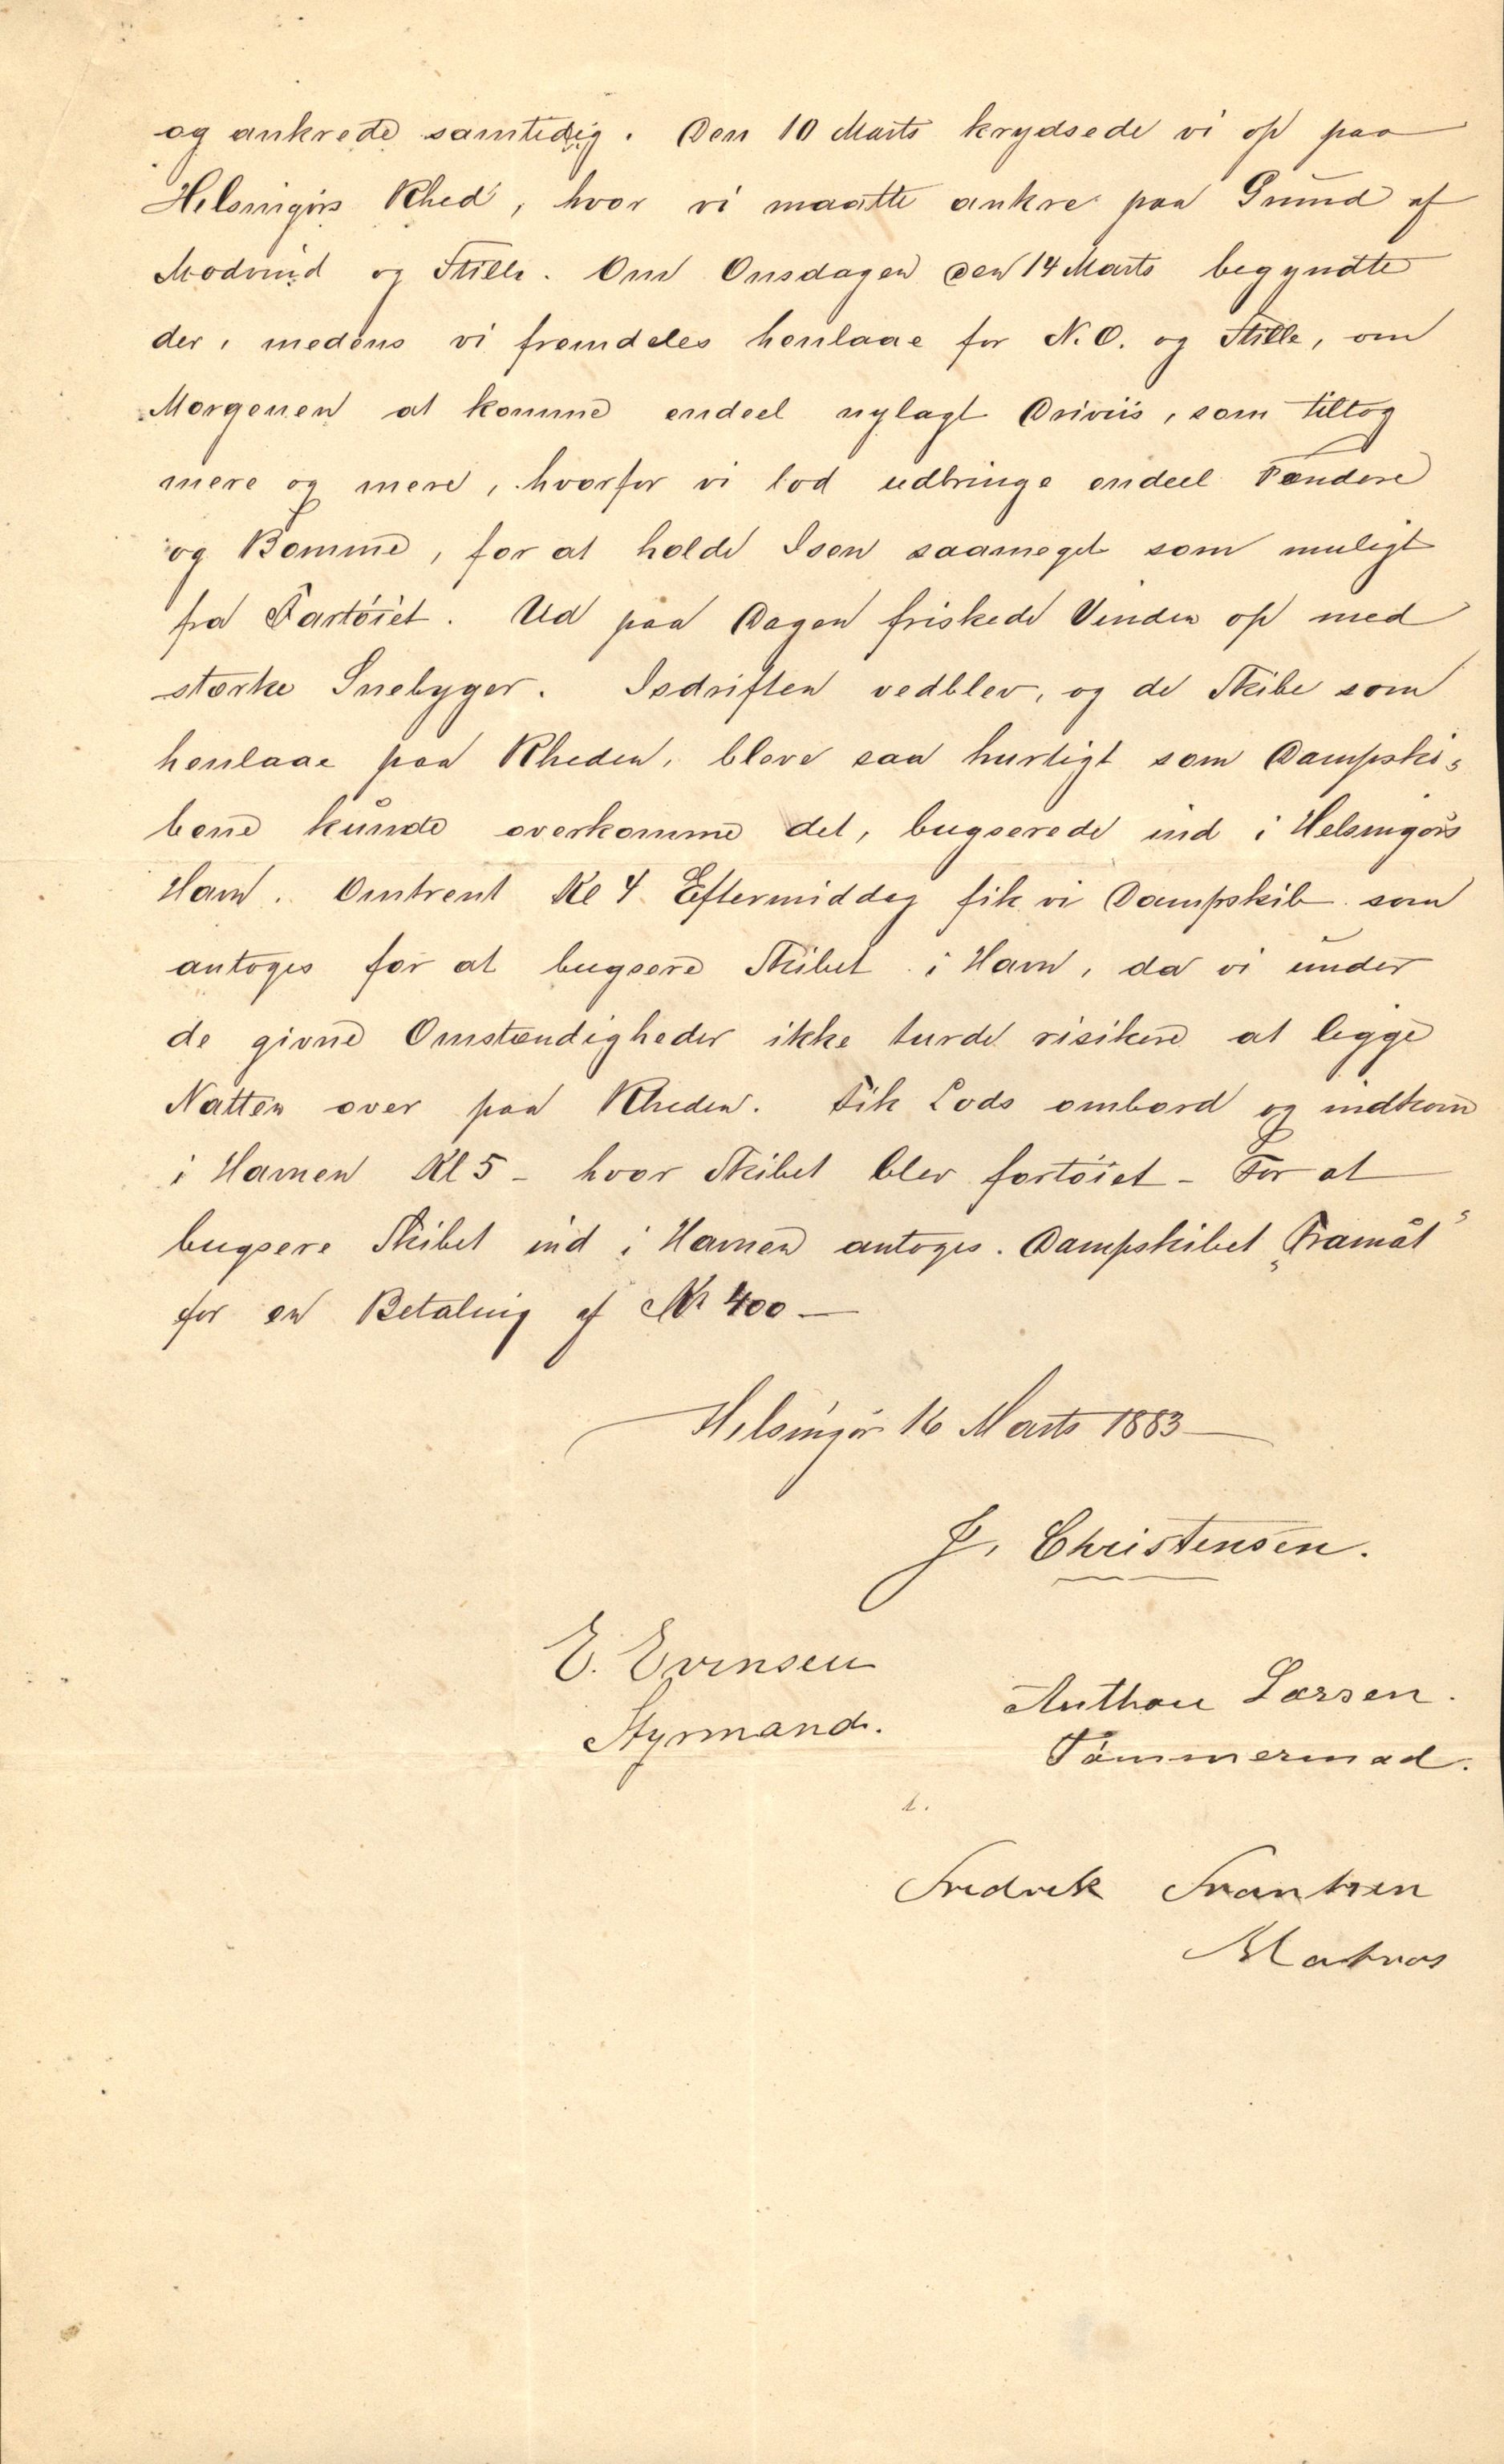 og ankrede samtidig. Den 10 Marts krydsede vi op paa
Helsingørs Rhed, hvor vi maatte ankre paa Grund af
Modvind og Stille. Om Onsdagen den 14 Marts begyndte
der, medens vi fremdeles henlaae for N. O. og Stille, om
Morgenen at komme endeel nylagt Driviis, som tiltog
mere og mere, hvorfor vi lod udbringe endeel Fendere
og Bomme, for at holde Isen saameget som muligt
fra Fartøiet. Ud paa Dagen friskede Vinden op med
stærke Snebyger. Isdriften vedblev, og de Skibe som
henlaae paa Rheden, bleve saa hurtigt som Dampski-
bene kunde overkomme det, bugserede ind i Helsingørs
Havn. Omtrent Kl 4 Eftermiddag fik vi Dampskib som
antoges for at bugsere Skibet i Havn, da vi under
de givne Omstændigheder ikke turde risikere at ligge
Natten over paa Rheden. Fik Lods ombord og indkom
i Havnen Kl 5 - hvor Skibet blev fortøiet - For at
bugsere Skibet ind i Havnen antoges Dampskibet „Framåt"
for en Betaling af Kr 400 —
Helsingør 16 Marts 1883
J. Christensen.
E. Evensen
Styrmand.
Anthon Larsen.
Tømmermad.
Fredrek Frantzen
Matros